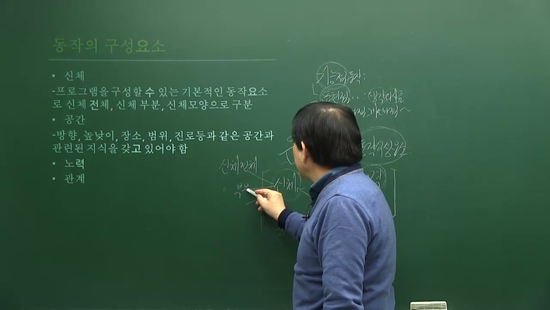 동작의 구성요소
• 신체
-프로그램을 구성할 수 있는 기본적인 동작요소
로 신체 전체, 신체 부분, 신체모양으로 구분
• 공간
-방향, 높낮이, 장소, 범위, 진로등과 같은 공간과
관련된 지식을 갖고 있어야 함
• 노력
• 관계
신체전체
신체